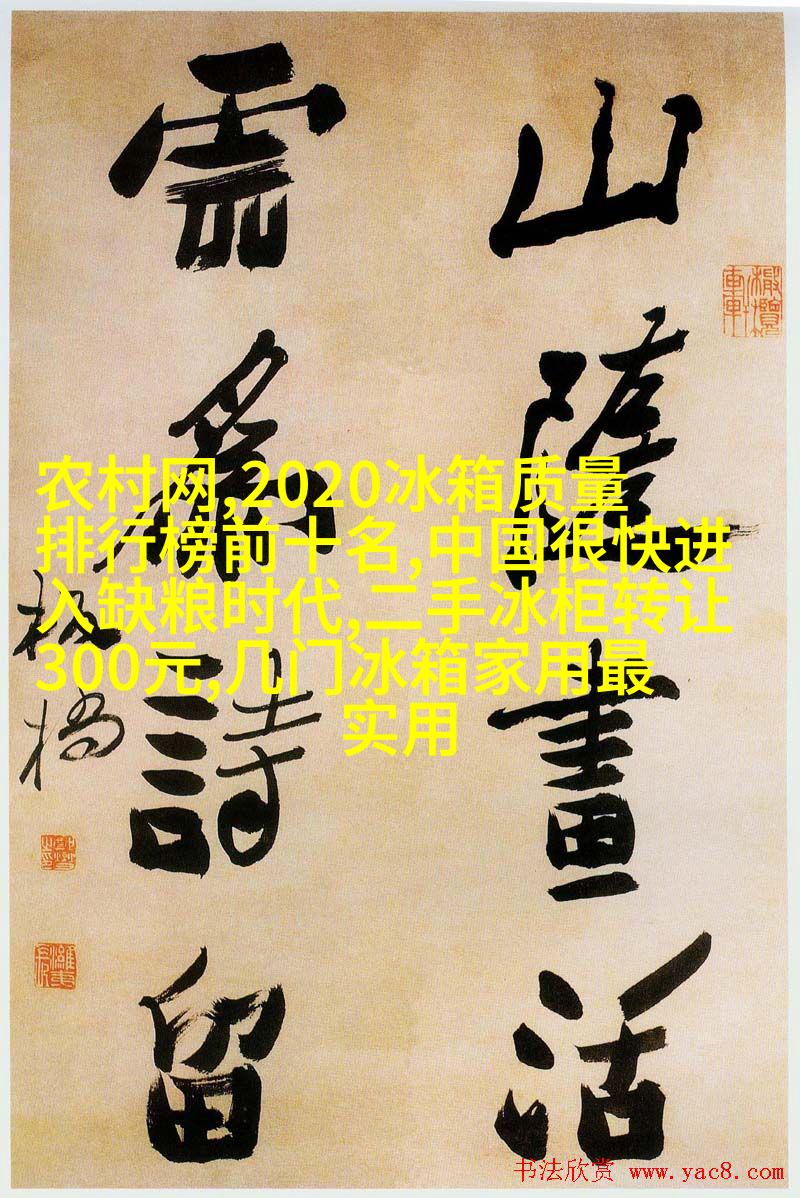 山隨畫活
雲爲詩留
板橋
农村网,2020冰箱质量
排行榜前十名,中国很快进
入缺粮时代,二手冰柜转让
300元,几门冰箱家用最
实用
书法欣赏 www.yac8.com